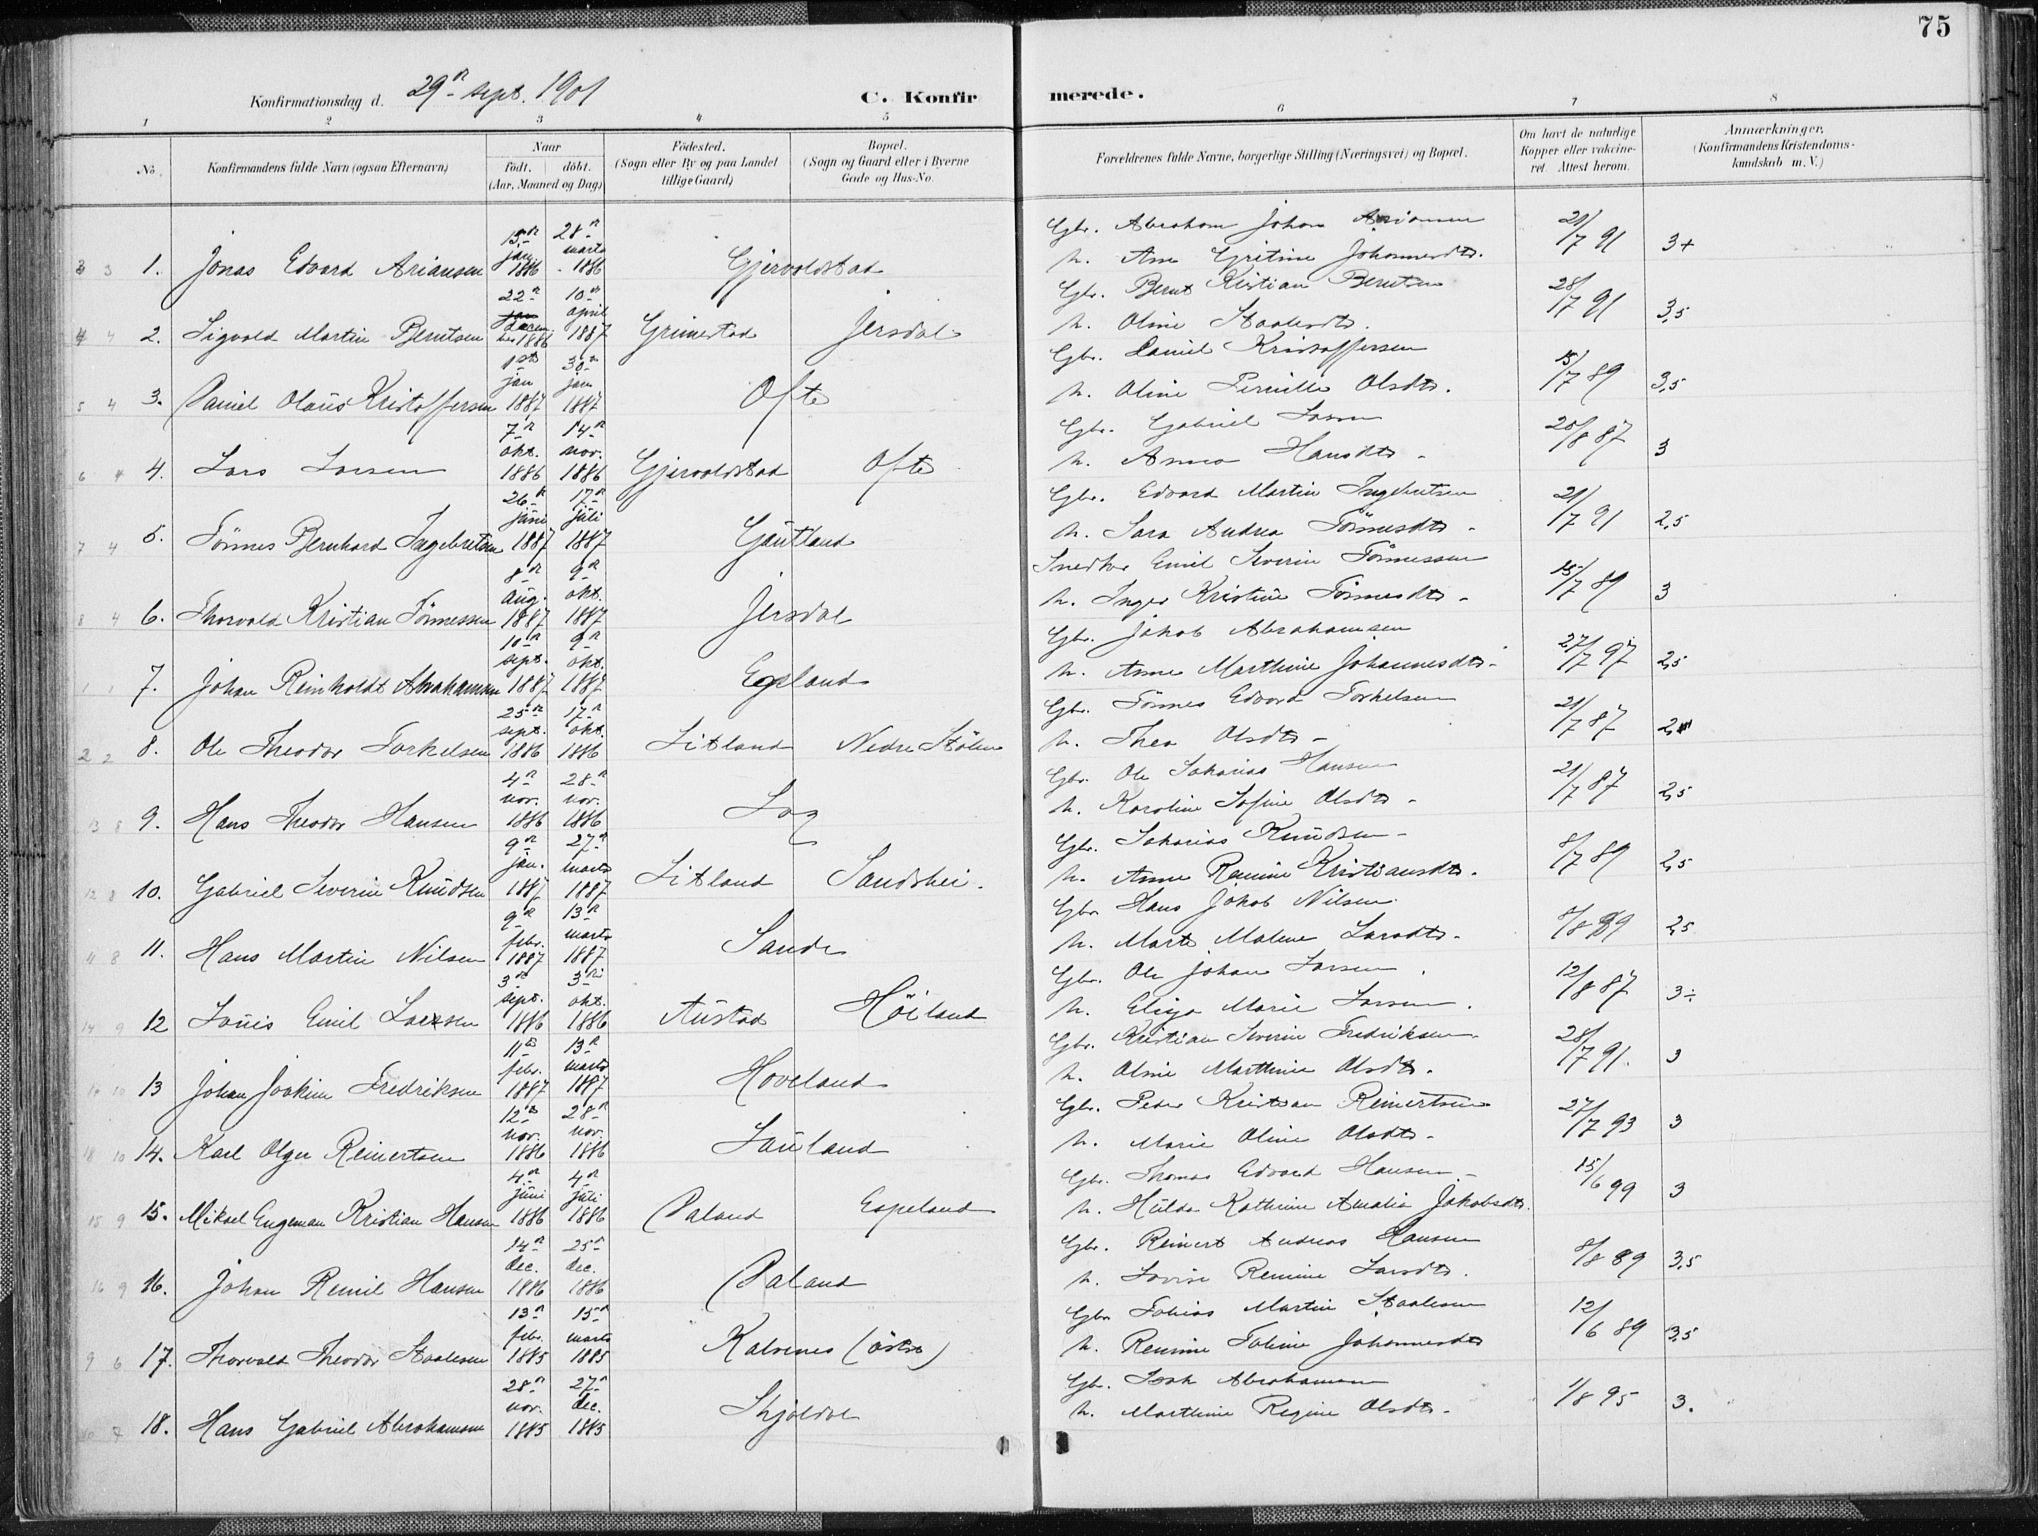 75
Konfirmationsdag d. 29de sept. 1901 C. Konfir merede.
1 2 3 4 5 6 7 8
No. Konfirmandens fulde Navn (ogsaa Efternavn) Naar født. døbt. (Aar, Maaned og Dag) Fødested. (Sogn eller By og paa Landet tillige Gaard) Bopæl. (Sogn og Gaard eller i Byerne Gade og Hus-No. Forældrenes fulde Navne, borgerlige Stilling (Næringsvei) og Bopæl. Om havt de naturlige Kopper eller vakcineret. Attest herom. Anmærkninger. (Konfirmandens Kristendomskundskab m. V.)
1. Jonas Edvard Ariansen 15 jan. 1886 28 marts 1886 Gjervoldstad Gbr. Abraham Johan Ariansen 21/7 91 3+
h. Ane Gritine Johannesdtr.
2. Sigvald Martin Berntsen 22 decem ber 1886 10 april 1887 Grimestad Jersdal Gbr. Bernt Kristian Berntsen 28/7 91 3,5
h. Oline Staalesdtr.
3. Daniel Olaus Kristoffersen 1ste jan 1887 30 jan 1887 Ofte Gbr. Daniel Kristoffersen 15/7 89 3,5
h. Oline Pernille Olsdtr.
4. Lars Larsen 7 okt. 1886 14 nov. 1886 Gjervoldstad Ofte Gbr. Gabriel Larsen 20/8 87 3
h. Anna Hansdtr.
5. Tönnes Bernhard Ingebretsen 26 juni 1887 17 juli 1887 Gautland Gbr. Edvard Martin Ingebretsen 21/7 91 2,5
h. Sara Andrea Tönnesdtr.
6. Thorvald Kristian Tönnessen 8 aug. 1887 9 okt. 1887 Jersdal Snedker Emil Severin Tönnessen 15/7 89 3
h. Inger Kristine Tönnesdtr.
7. Johan Reinholdt Abrahamsen 10 sept. 1887 9 okt. 1887 Egeland Gbr. Jakob Abrahamsen 27/7 97 2,5
h. Anne Marthine Johannesdtr.
8. Ole Theodor Torkelsen 25 sept. 1886 17 okt. 1886 Litland Nedre Stölen Gbr. Tönnes Edvard Torkelsen 21/7 87
h. Thea Olsdtr.
9. Hans Theodor Hansen 4 nov. 1886 28 nov. 1886 Log Gbr. Ole Sakarias Hansen 21/7 87 2,5
h. Karoline Sofine Olsdtr.
10. Gabriel Severin Knudsen 9 jan. 1887 27 marts 1887 Litland Sandshei. Gbr. Sakarias Knudsen 8/7 89 2,5
h. Anne Ramine Kristiansdtr.
11. Hans Martin Nilsen 9 febr. 1887 13 marts 1887 Sande Gbr. Hans Jakob Nilsen 8/8 89 2,5
h. Marte Malene Larsdtr.
12 Louis Emil Larsen 3 sept. 1886 3 okt. 1886 Austad Höiland Gbr. Ole Johan Larsen 12/8 87 3÷
h. Elisa Marie Larsen.
13 Johan Joakim Fredriksen 11 febr. 1887 13 marts 1887 Hoveland Gbr. Kristian Severin Fredriksen 28/7 91. 3
h. Oline Marthine Olsdtr.
14. Karl Olger Reinertsen 12 nov. 1886 28 nov. 1886 Lauland Gbr. Peder Kristian Reinertsen 27/7 93 3
h. Marie Oline Olsdtr.
15. Mikael Engeman Kristian Hansen 4 juni 1886 4 juli 1886 Paland Espeland Gbr. Thomas Edvard Hansen 15/6 99 3
h. Hulda Kathrine Amalia Jakobsdtr.
16. Johan Remil Hansen 14 dec. 1886 25 dec. 1886 Paland Gbr. Reinert Andreas Hansen 8/8 89 3,5
h. Lovise Remine Larsdtr.
17. Thorvald Theodor Staalesen 13 febr. 1885 15 marts 1885 Kalvenes (östre) Gbr. Tobias Martin Staalesen 12/6 89 3,5
h. Remine Toline Johannesdtr
18. Hans Gabriel Abrahamsen 28 nov. 1885 27 dec. 1885 Skjoldal Gbr. Isak Abrahamsen 1/8 95 3.
h. Marthine Regine Olsdtr.